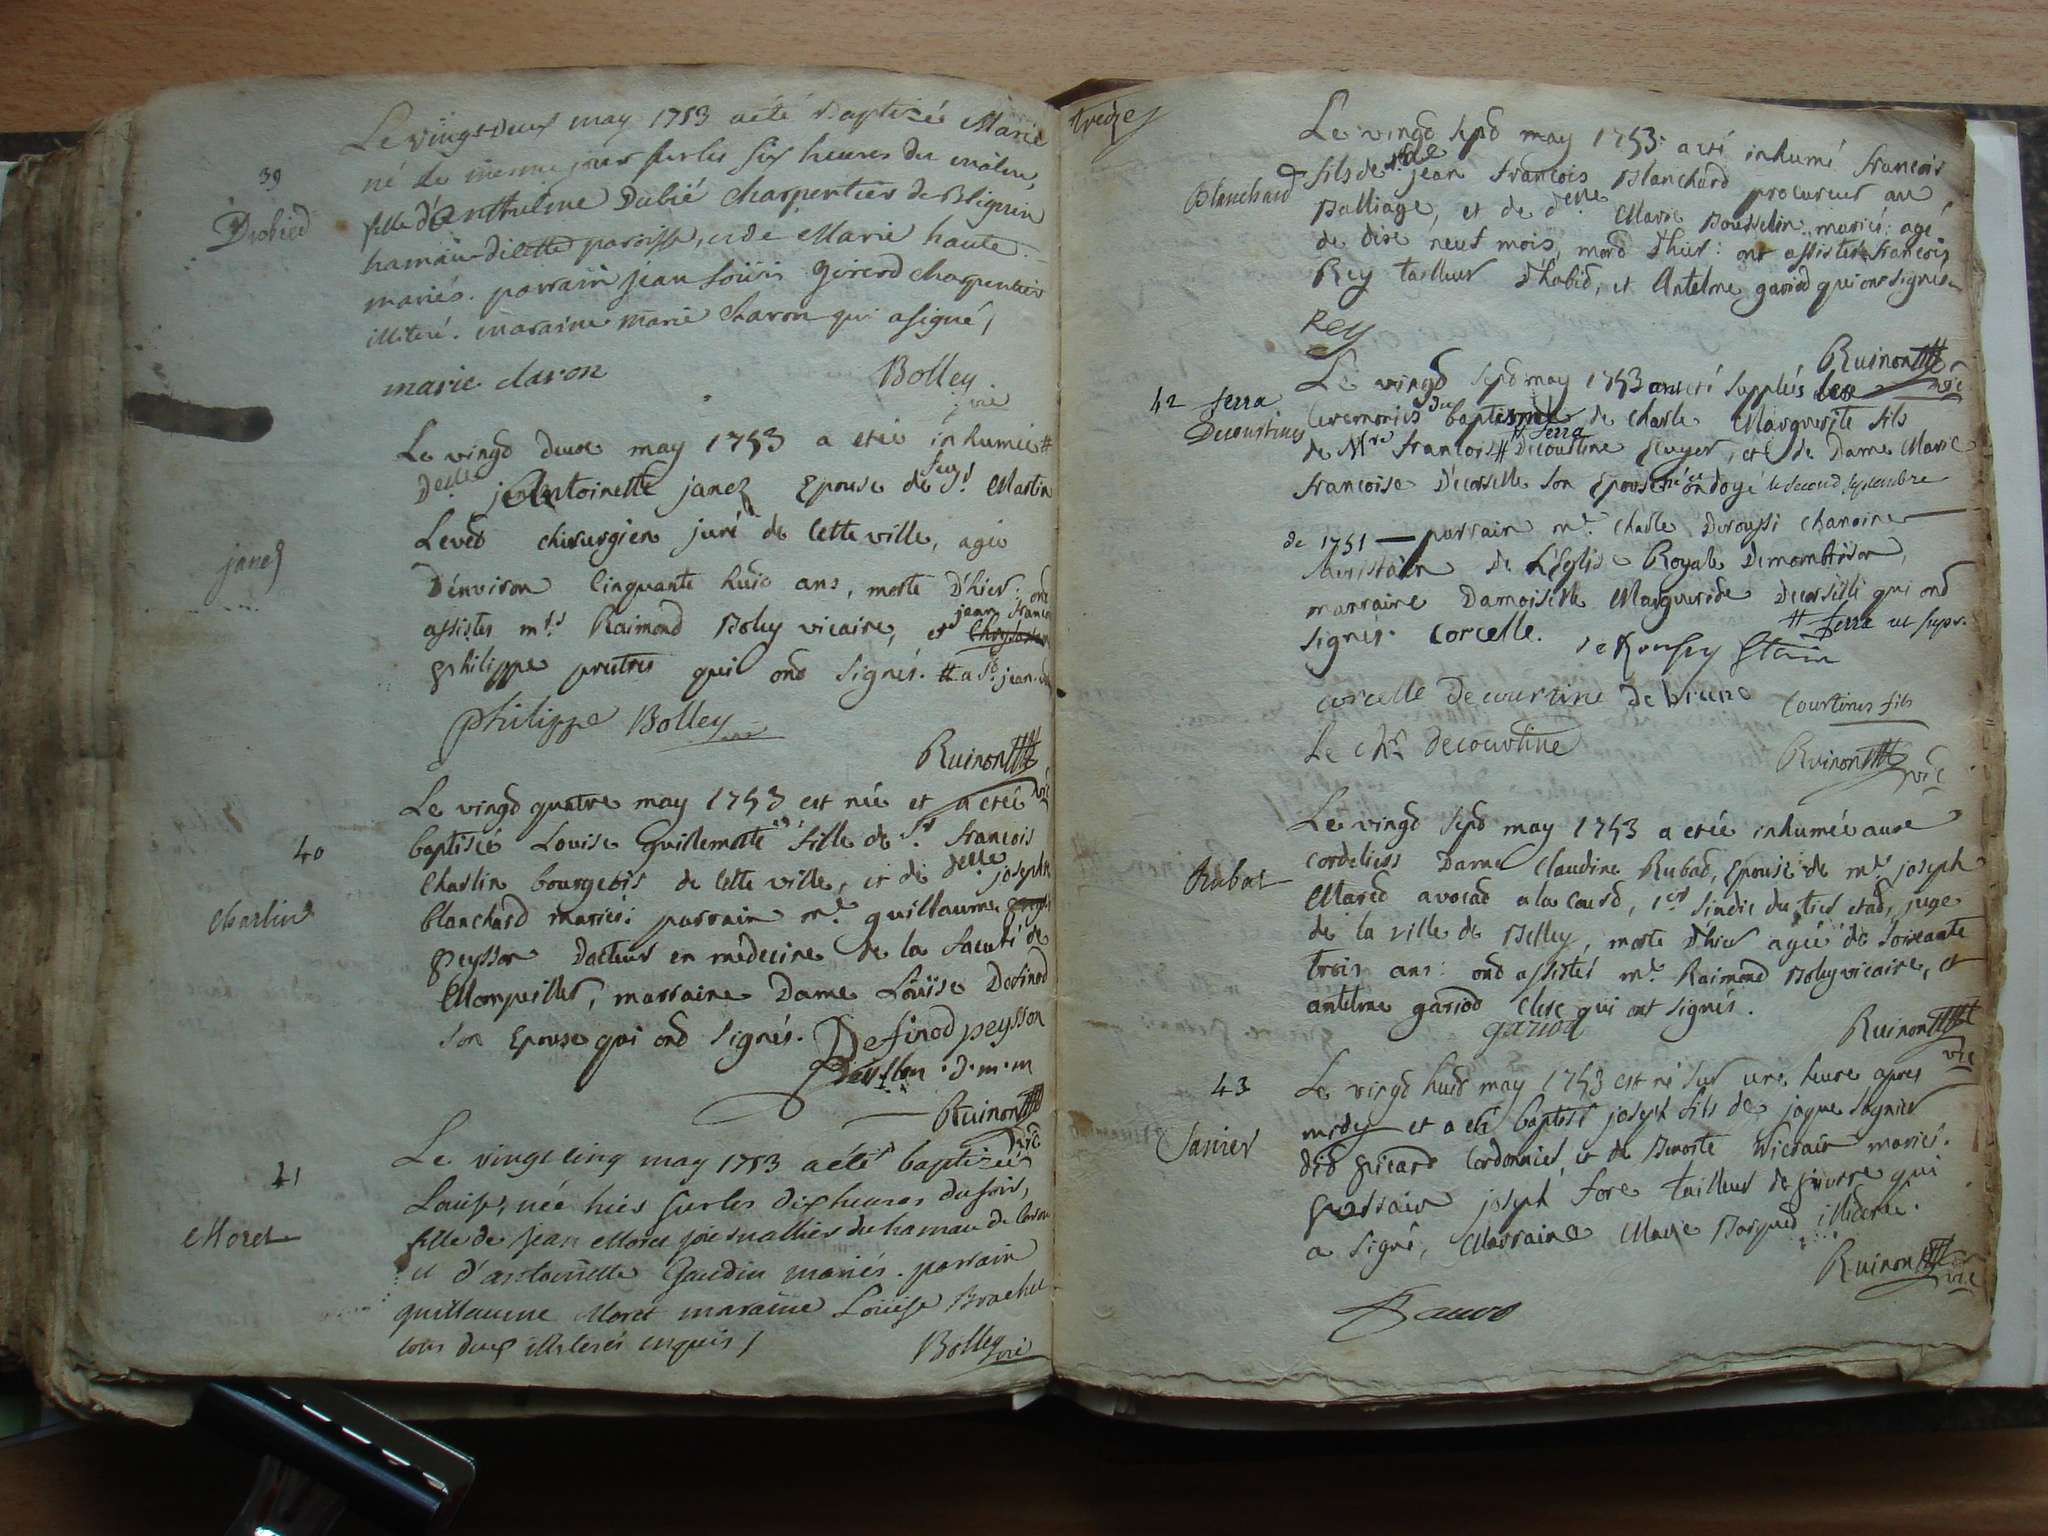 Le vingt deux may 1753 a été Baptizée Marie
39
né le mesme jour sur les six heures du matin,
Dubied
fille d'Anthelme Dubié charpentier de Blignin
hamau de cette paroisse, et de Marie haute
mariés. parrain jean Loüis Girerd charpentier
illiteré. maraine marie Charon qui a signé,
marie charon Bolley
vire
Le vingd deux may 1753 a eteé inhumeé #
Delle Antoinette janez Epouse de feu Sr Martin
janez
Leved chirurgien juré de cette ville, agée
D'environ Cinquante huid ans, morte D'hier: ond
assistes mrs Raimond Boley vicaire, et jean francois
philippe pretres qui ond signés. # a St jean
philippe Bolley
Ruinon
vic
Le vingd quatre may 1753 est neé et a eteé
40
baptiseé Louise Guillemette fille de Sr francois
Charlin bourgeois de cette ville, et de delle joseph
Charlin
blanchard mariés: parrain mr guillaume
peysson Docteur en medecine de la faculté de
Monpeiller, marraine Dame Loüise Definod
son Epouse qui ond signés. Definod peysson
Peysson . d . m . m
Ruinon
vic
Le vingt cinq may 1753 a été baptizée
41
Louise, née hier sur les dix heures du soir,
fille de jean Moret journallier du hamau de
Moret
et d'antoinette Gaudin mariés. parrain
guillaume Moret maraine Loüise Brachet
tous deux illiterés enquis /
Bolley vire
treizes
Le vingd sepd may 1753: a eté inhumé francois
Blanchard
fils de jean francois Blanchard procureur au
Balliage, et de delle Marie Bousselin mariés: agé
de dixe neuf mois, mord d'hier: ont assistes francois
Rey tailleur d'habid, et Antelme gariod qui ont signés
Rey
Ruinon
vic
Le vingd sepd may 1753 ont eté suppleés les
42 ferra
ceremonies du baptesme de charle Marguerite fils
Decourtines
de Mre francois # ferra Decourtine Ecuyer, et de Dame Marie
francoise D'corselle son Epouse né et ondoyé le second septembre
de 1751 — parrain mr Charle Deroussi chanoine
sacristain de L'Eglise Royale Demombrison,
marraine Damoiselle Margueride Decorselle qui ond
signés. corcelle. # ferra ut supr.
corcelle De courtine de brune Courtines fils
Le chr decourtine
Ruinon
vic
Le vingd sepd may 1753 a eteé inhumée aux
cordeliers Dame Claudine Rubad, Epouse de mr joseph
Rubat
Mared avocad a la Courd, 1er sindic du tiers etad, juge
de la ville de Belley, morte d'hier agée de soixante
trois ans: ond assistés mr Raimond Boley vicaire, et
antelme gariod clerc qui ont signés.
gariod
Ruinon
vic
43
Le vingd huid may 1753 est né sur une heure apres
midy et a eté baptisé joseph fils de jaque sognier
Sanier
did picard Cordonnier, et de Benoite mariés.
parrain joseph fore tailleur de pierre qui
a signé, Marraine Marie illiderée.
Ruinon
vic